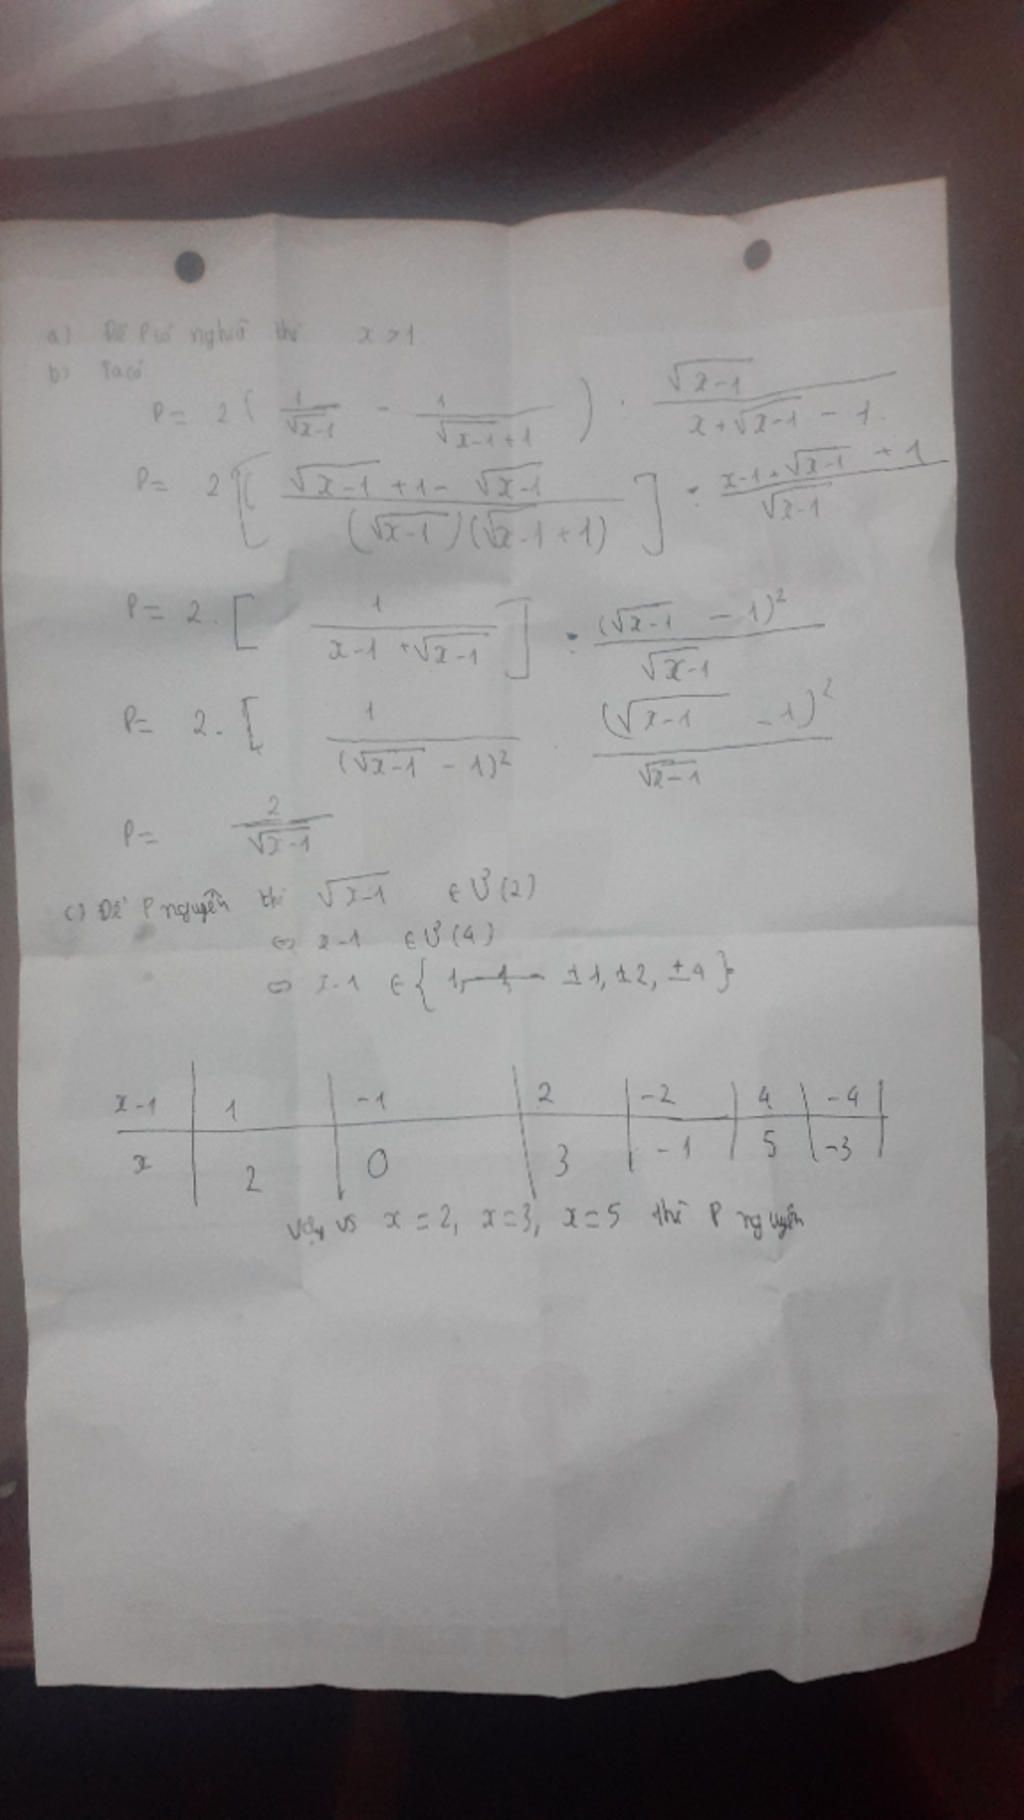 a) Để P có nghĩa thì x > 1
b) Ta có
P = 2 ( 1/√x-1 - 1/√x-1+1 ) . √x-1 / x+√x-1 - 1
P = 2 [ √x-1 +1 - √x-1 / (√x-1)(√x-1+1) ] . x-1+√x-1 + 1 / √x-1
P = 2. [ 1 / x-1 +√x-1 ] : (√x-1 - 1)² / √x-1
P = 2. [ 1 / (√x-1 - 1)² . (√x-1 - 1)² / √x-1
P = 2 / √x-1
c) Để P nguyên thì √x-1 ∈ Ư(2)
⇔ x-1 ∈ Ư(4)
⇔ x-1 ∈ { 1, ±1, ±2, ±4 }
x-1 | 1 | -1 | 2 | -2 | 4 | -4 |
x | 2 | 0 | 3 | -1 | 5 | -3 |
Vậy vs x = 2, x=3, x=5 thì P nguyên